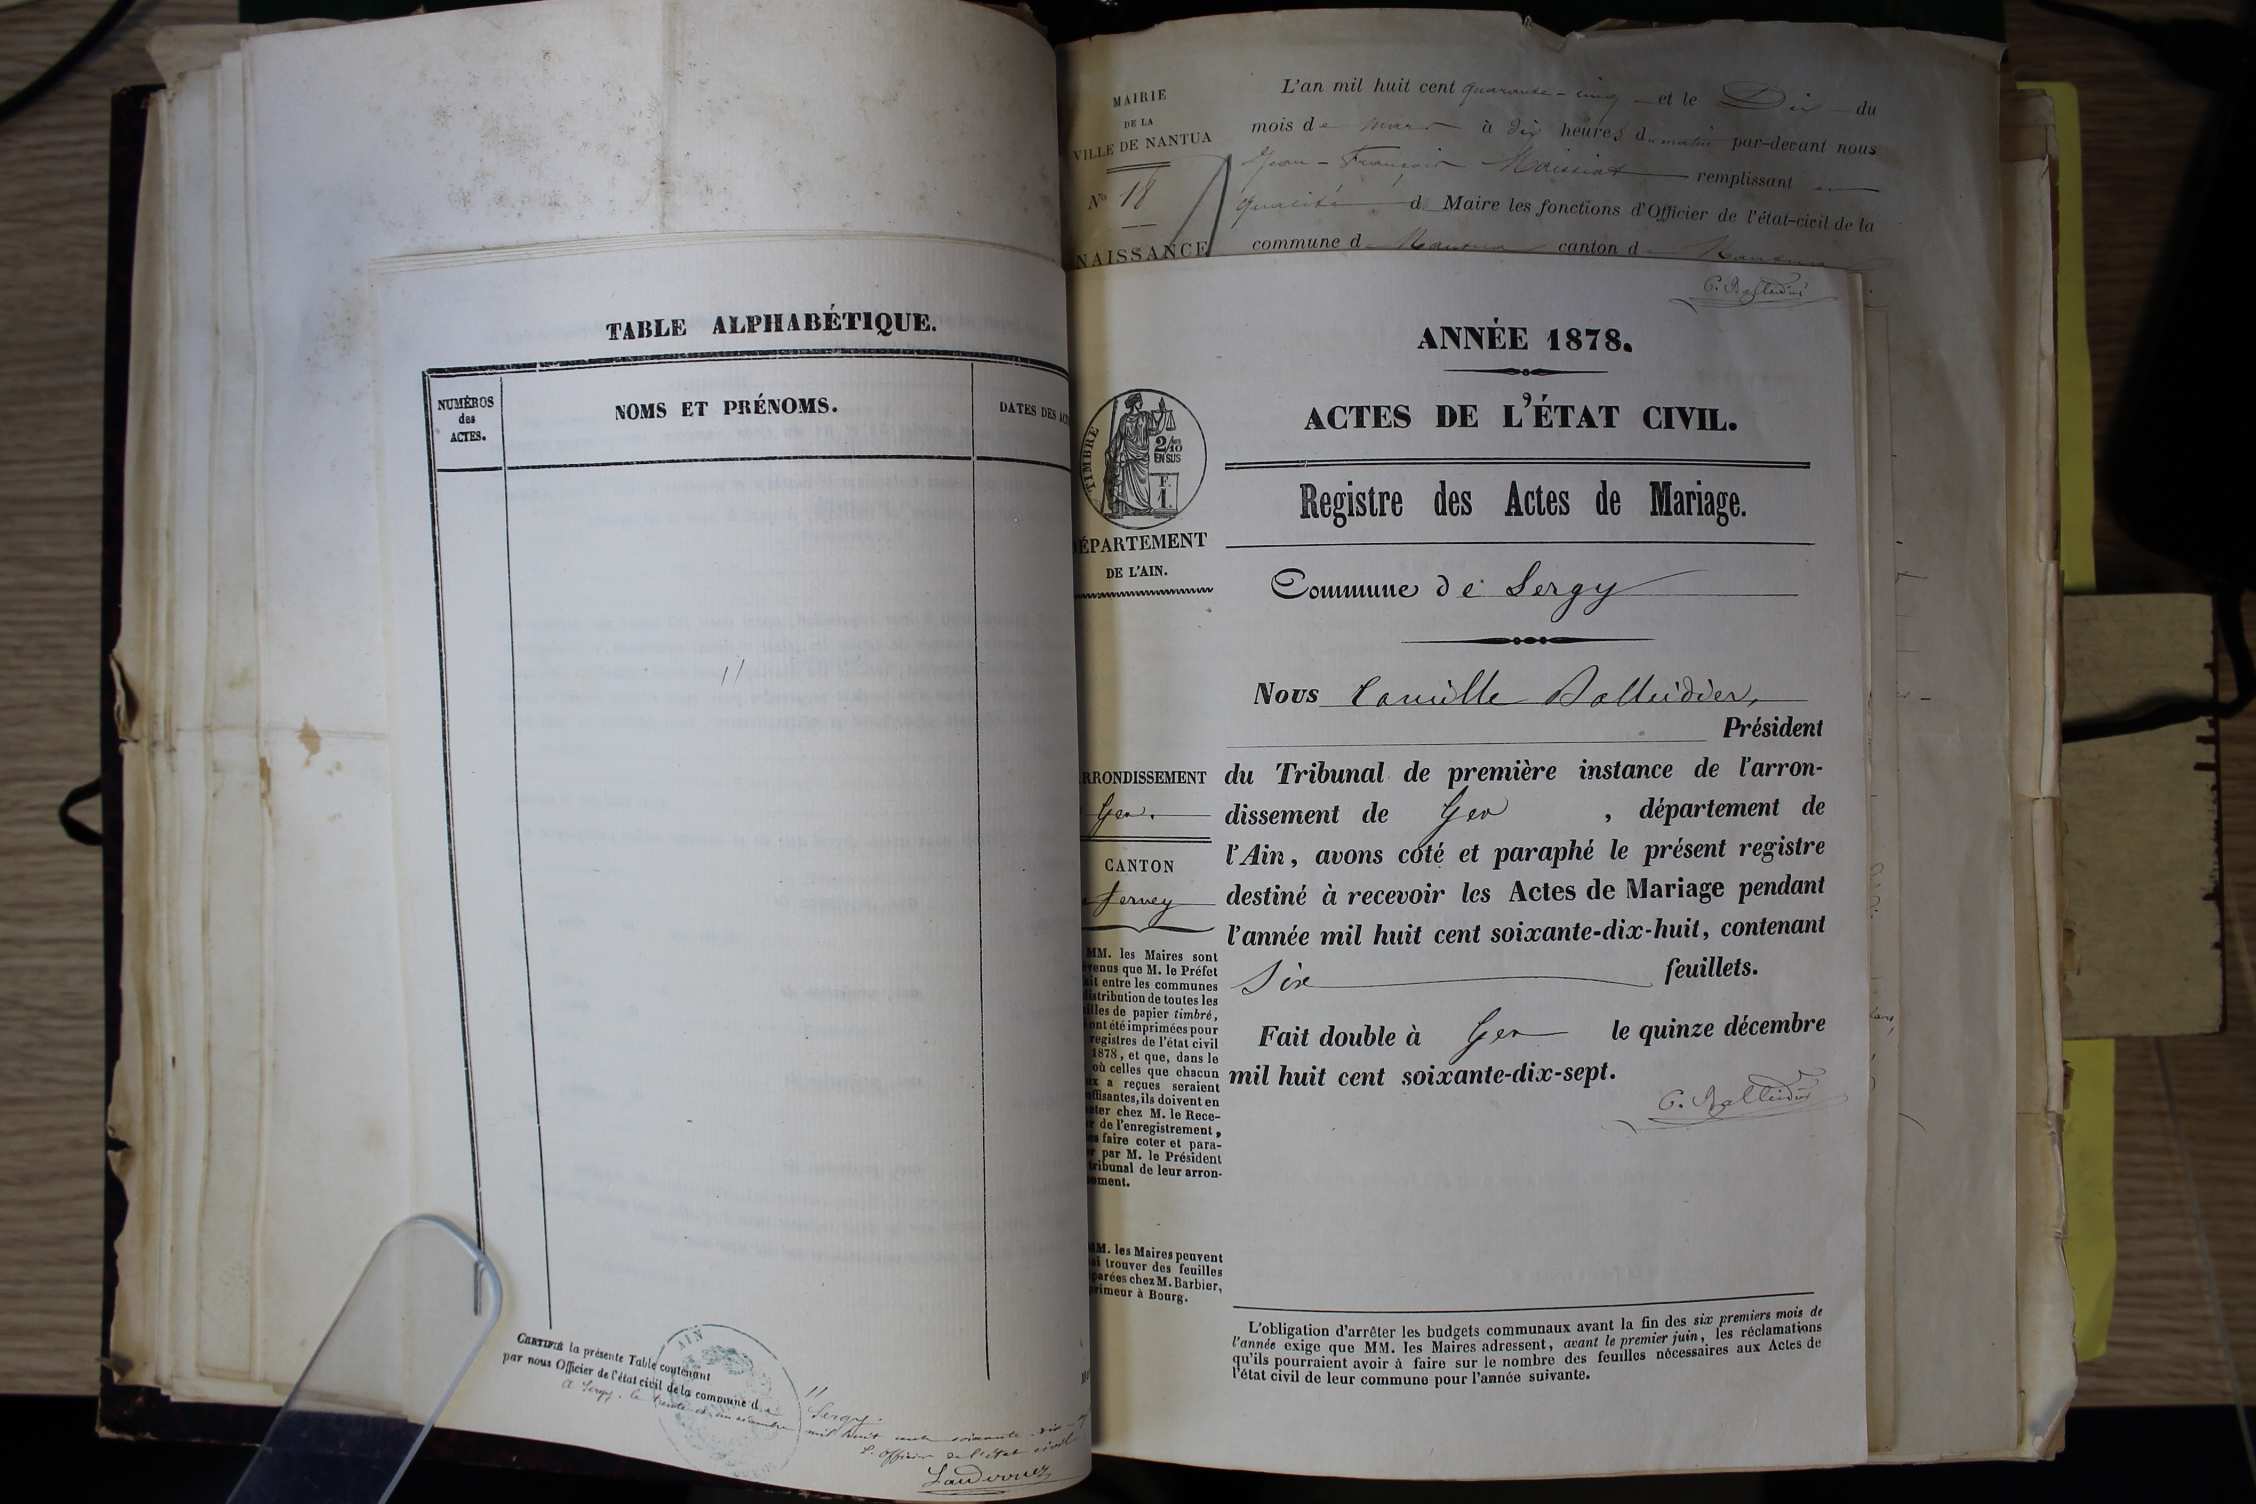 TABLE ALPHABÉTIQUE.
NUMÉROS
des
ACTES.
NOMS ET PRÉNOMS.
DATES DES ACT
11
CERTIFIÉ la présente Table contenant 11
par nous Officier de l'état civil de la commune de Sergy.
A Sergy, le trente et un décembre mil huit cent soixante-dix-
L'officier de l'état civil
MAIRIE
DE LA
VILLE DE NANTUA
No 18
NAISSANCE
L'an mil huit cent quarante-cinq et le Dix du
mois de mars à dix heures du matin par-devant nous
Jean-François Maissiat remplissant en
qualité de Maire les fonctions d'Officier de l'état-civil de la
commune d Nantua canton d Nantua
ANNÉE 1878.
ACTES DE L'ÉTAT CIVIL.
TIMBRE
2/10
EN SUS
F.
1.
Registre des Actes de Mariage.
DÉPARTEMENT
DE L'AIN.
Commune de Sergy
Nous Camille Balleidier,
Président
RRONDISSEMENT
Gex.
du Tribunal de première instance de l'arron-
dissement de Gex , département de
l'Ain, avons coté et paraphé le présent registre
destiné à recevoir les Actes de Mariage pendant
l'année mil huit cent soixante-dix-huit, contenant
Six feuillets.
Fait double à Gex le quinze décembre
mil huit cent soixante-dix-sept.
C. Balleidier
CANTON
Ferney
MM. les Maires sont
venus que M. le Préfet
it entre les communes
istribution de toutes les
illes de papier timbré,
ont été imprimées pour
registres de l'état civil
1878, et que, dans le
où celles que chacun
ux a reçues seraient
ffisantes, ils doivent en
eter chez M. le Rece-
r de l'enregistrement,
es faire coter et para-
r par M. le Président
tribunal de leur arron-
ement.
MM. les Maires peuvent
si trouver des feuilles
parées chez M. Barbier,
primeur à Bourg.
L'obligation d'arrêter les budgets communaux avant la fin des six premiers mois de
l'année exige que MM. les Maires adressent, avant le premier juin, les réclamations
qu'ils pourraient avoir à faire sur le nombre des feuilles nécessaires aux Actes de
l'état civil de leur commune pour l'année suivante.